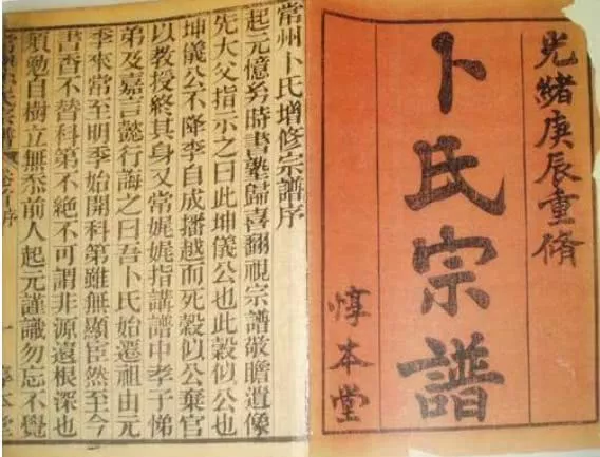 光緒庚辰重脩
卜氏宗譜
惇本堂
常州卜氏增修宗譜序
起元憶㓜時書塾歸喜翻視宗譜敬瞻遺像
先大父指示之曰此坤儀公也此穀似公也
坤儀公不降李自成播越而死穀似公棄官
以教授終其身又常娓娓指講譜中孝子悌
弟及嘉言懿行誨之曰吾卜氏始遷祖由元
季來常至明季始開科第雖無顯臣然至今
書香不替科第不絶不可謂非源遠根深也
須勉自樹立無忝前人起元謹識勿忘不覺
惇本堂